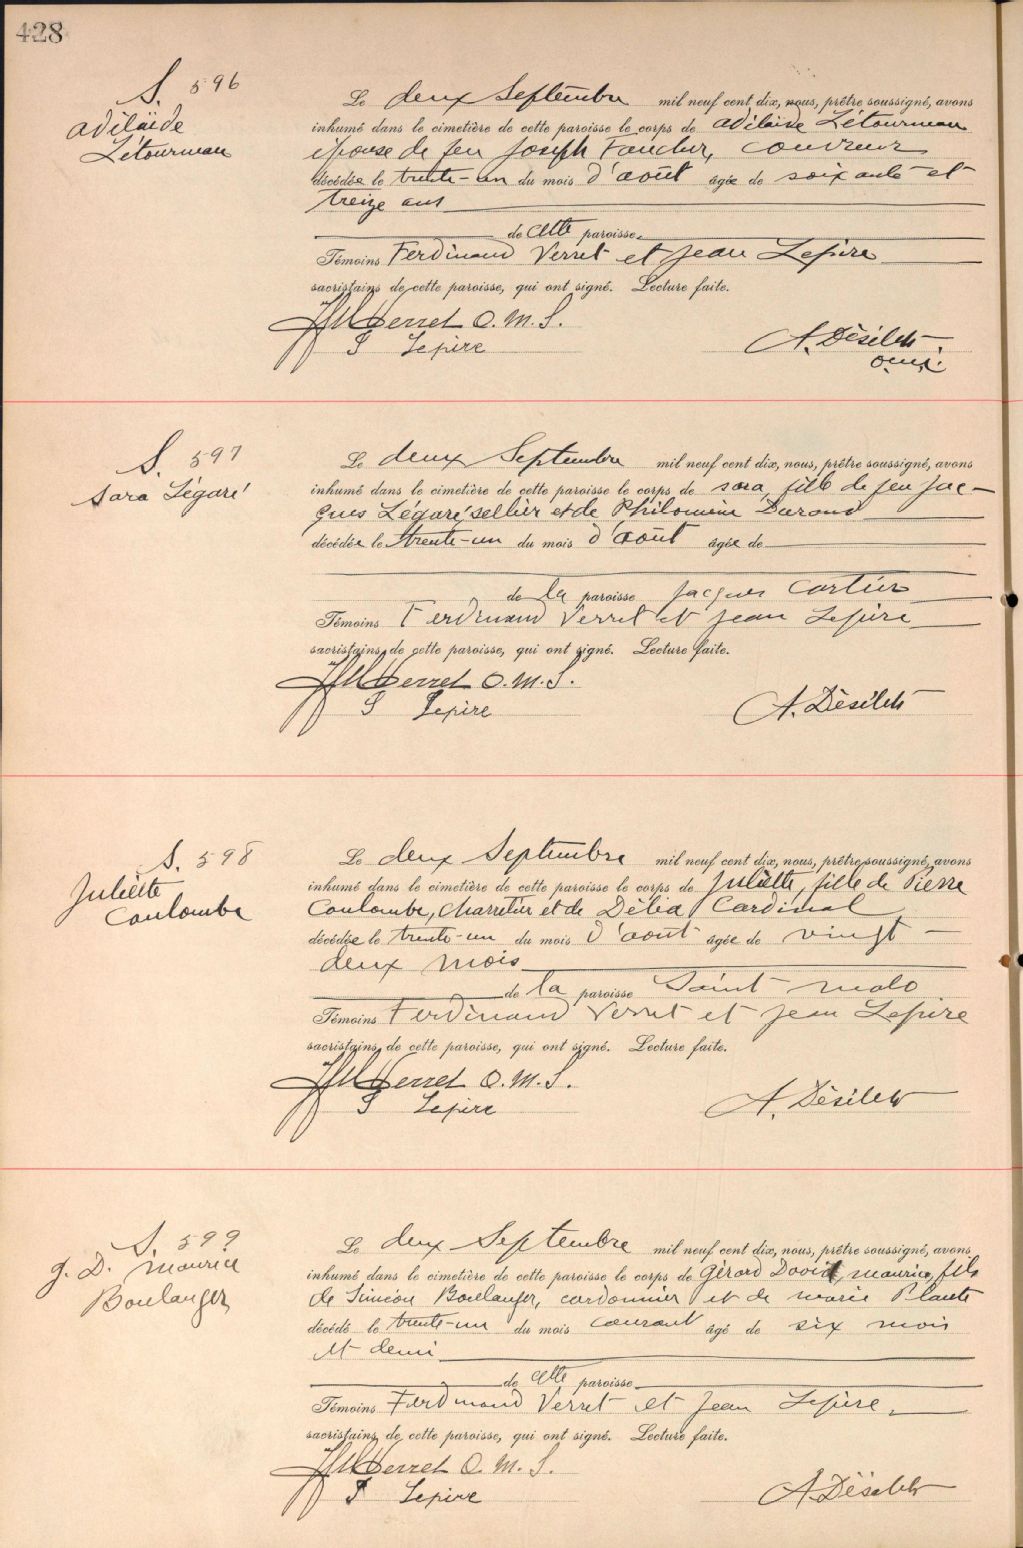 428
S. 596
Adélaïde
Létourneau
Le deux Septembre mil neuf cent dix, nous, prêtre soussigné, avons
inhumé dans le cimetière de cette paroisse le corps de Adélaïde Létourneau
épouse de feu Joseph Faucher, couvreur
décédée le trente-un du mois d'août âgée de soixante et
treize ans
de cette paroisse.
Témoins Ferdinand Verret et Jean Lepire
sacristains de cette paroisse, qui ont signé. Lecture faite.
Verret O.M.S.
J Lepire
A. Désilets
o.m.i.
S. 597
Sara Légaré
Le deux Septembre mil neuf cent dix, nous, prêtre soussigné, avons
inhumé dans le cimetière de cette paroisse le corps de Sara, fille de feu Jac-
ques Légaré, sellier et de Philomène Durand
décédée le trente-un du mois d'août âgée de
de la paroisse Jacques Cartier
Témoins Ferdinand Verret et Jean Lepire
sacristains de cette paroisse, qui ont signé. Lecture faite.
Verret O.M.S.
J Lepire
A. Désilets
S. 598
Juliette
Coulombe
Le deux Septembre mil neuf cent dix, nous, prêtre soussigné, avons
inhumé dans le cimetière de cette paroisse le corps de Juliette, fille de Pierre
Coulombe, charretier et de Délia Cardinal
décédée le trente-un du mois d'août âgée de vingt-
deux mois
de la paroisse Saint Malo
Témoins Ferdinand Verret et Jean Lepire
sacristains de cette paroisse, qui ont signé. Lecture faite.
Verret O.M.S.
J Lepire
A. Désilets
S. 599
G. D. Maurice
Boulanger
Le deux Septembre mil neuf cent dix, nous, prêtre soussigné, avons
inhumé dans le cimetière de cette paroisse le corps de Gérard David, Maurice, fils
de Siméon Boulanger, cordonnier et de Marie Plante
décédé le trente-un du mois courant âgé de six mois
et demi
de cette paroisse
Témoins Ferdinand Verret et Jean Lepire
sacristains de cette paroisse, qui ont signé. Lecture faite.
Verret O.M.S.
J Lepire
A. Désilets